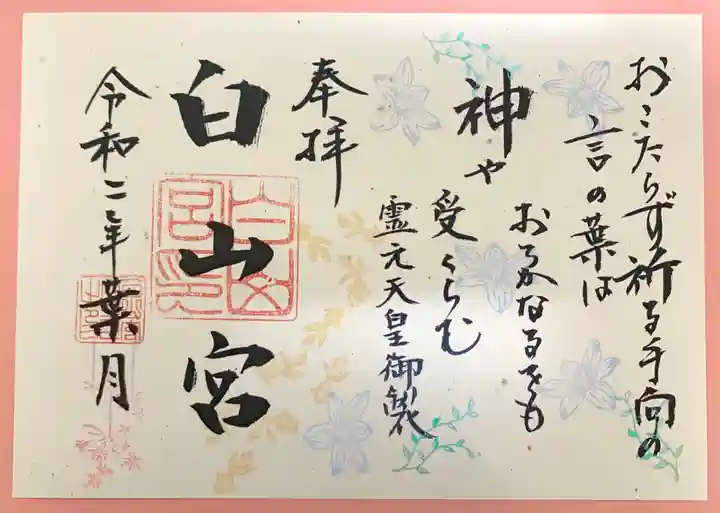 おこたらず祈る手向の
言の葉は
おろかなるをも
神や
受くらむ
霊元天皇御製
奉拝
白山宮
令和二年葉月
白山宮印